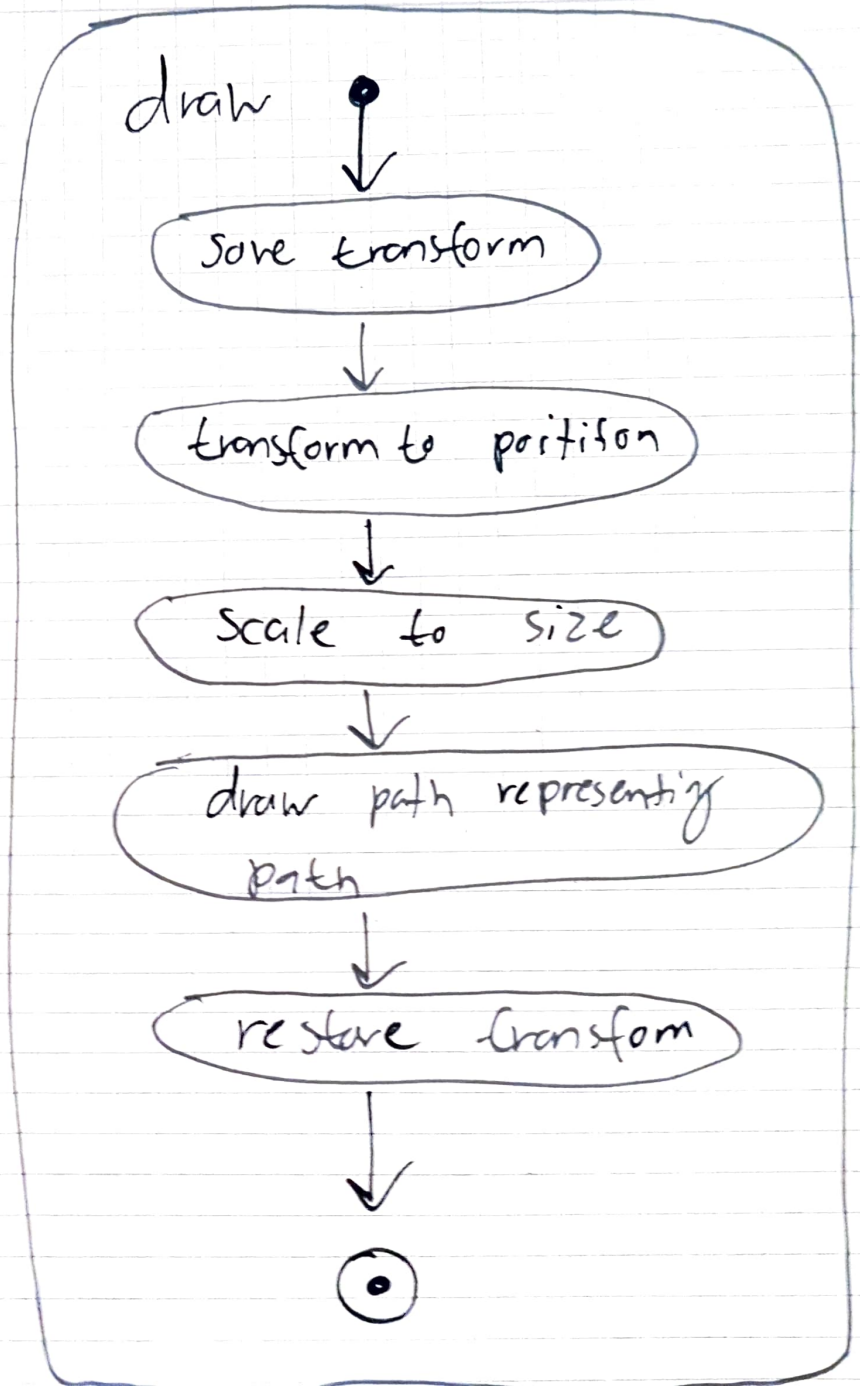 draw
save transform
transform to position
scale to size
draw path representig
path
restore transfom